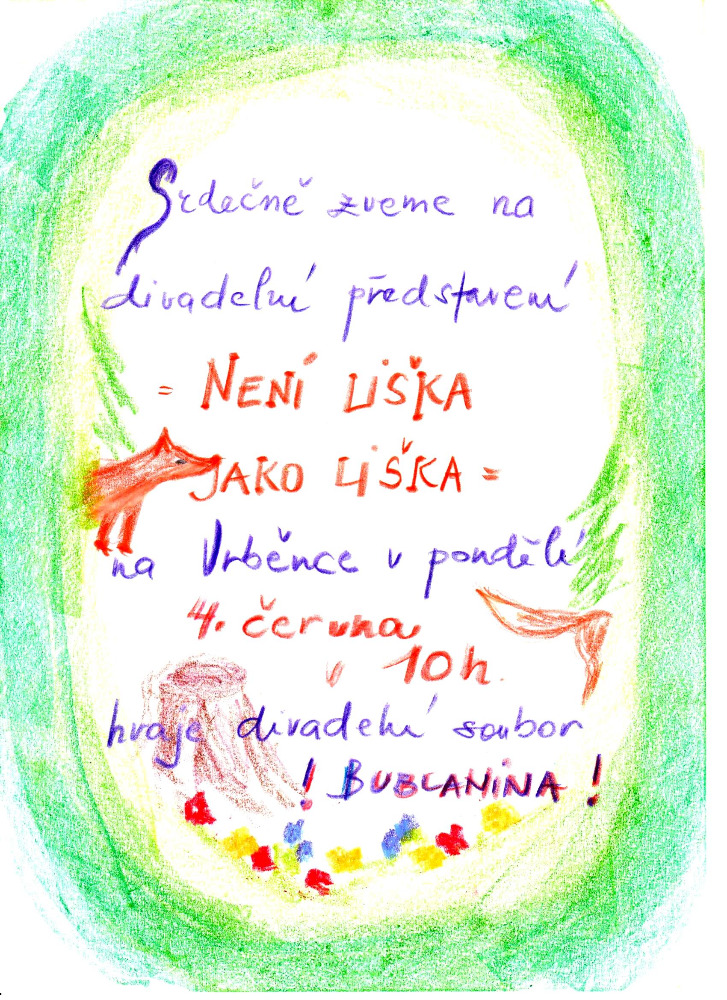 Srdečně zveme na
divadelní představení
= NENÍ LIŠKA
JAKO LIŠKA =
na Vrběnce v pondělí
4. června
v 10h.
hraje divadelní soubor
! BUBLANINA !